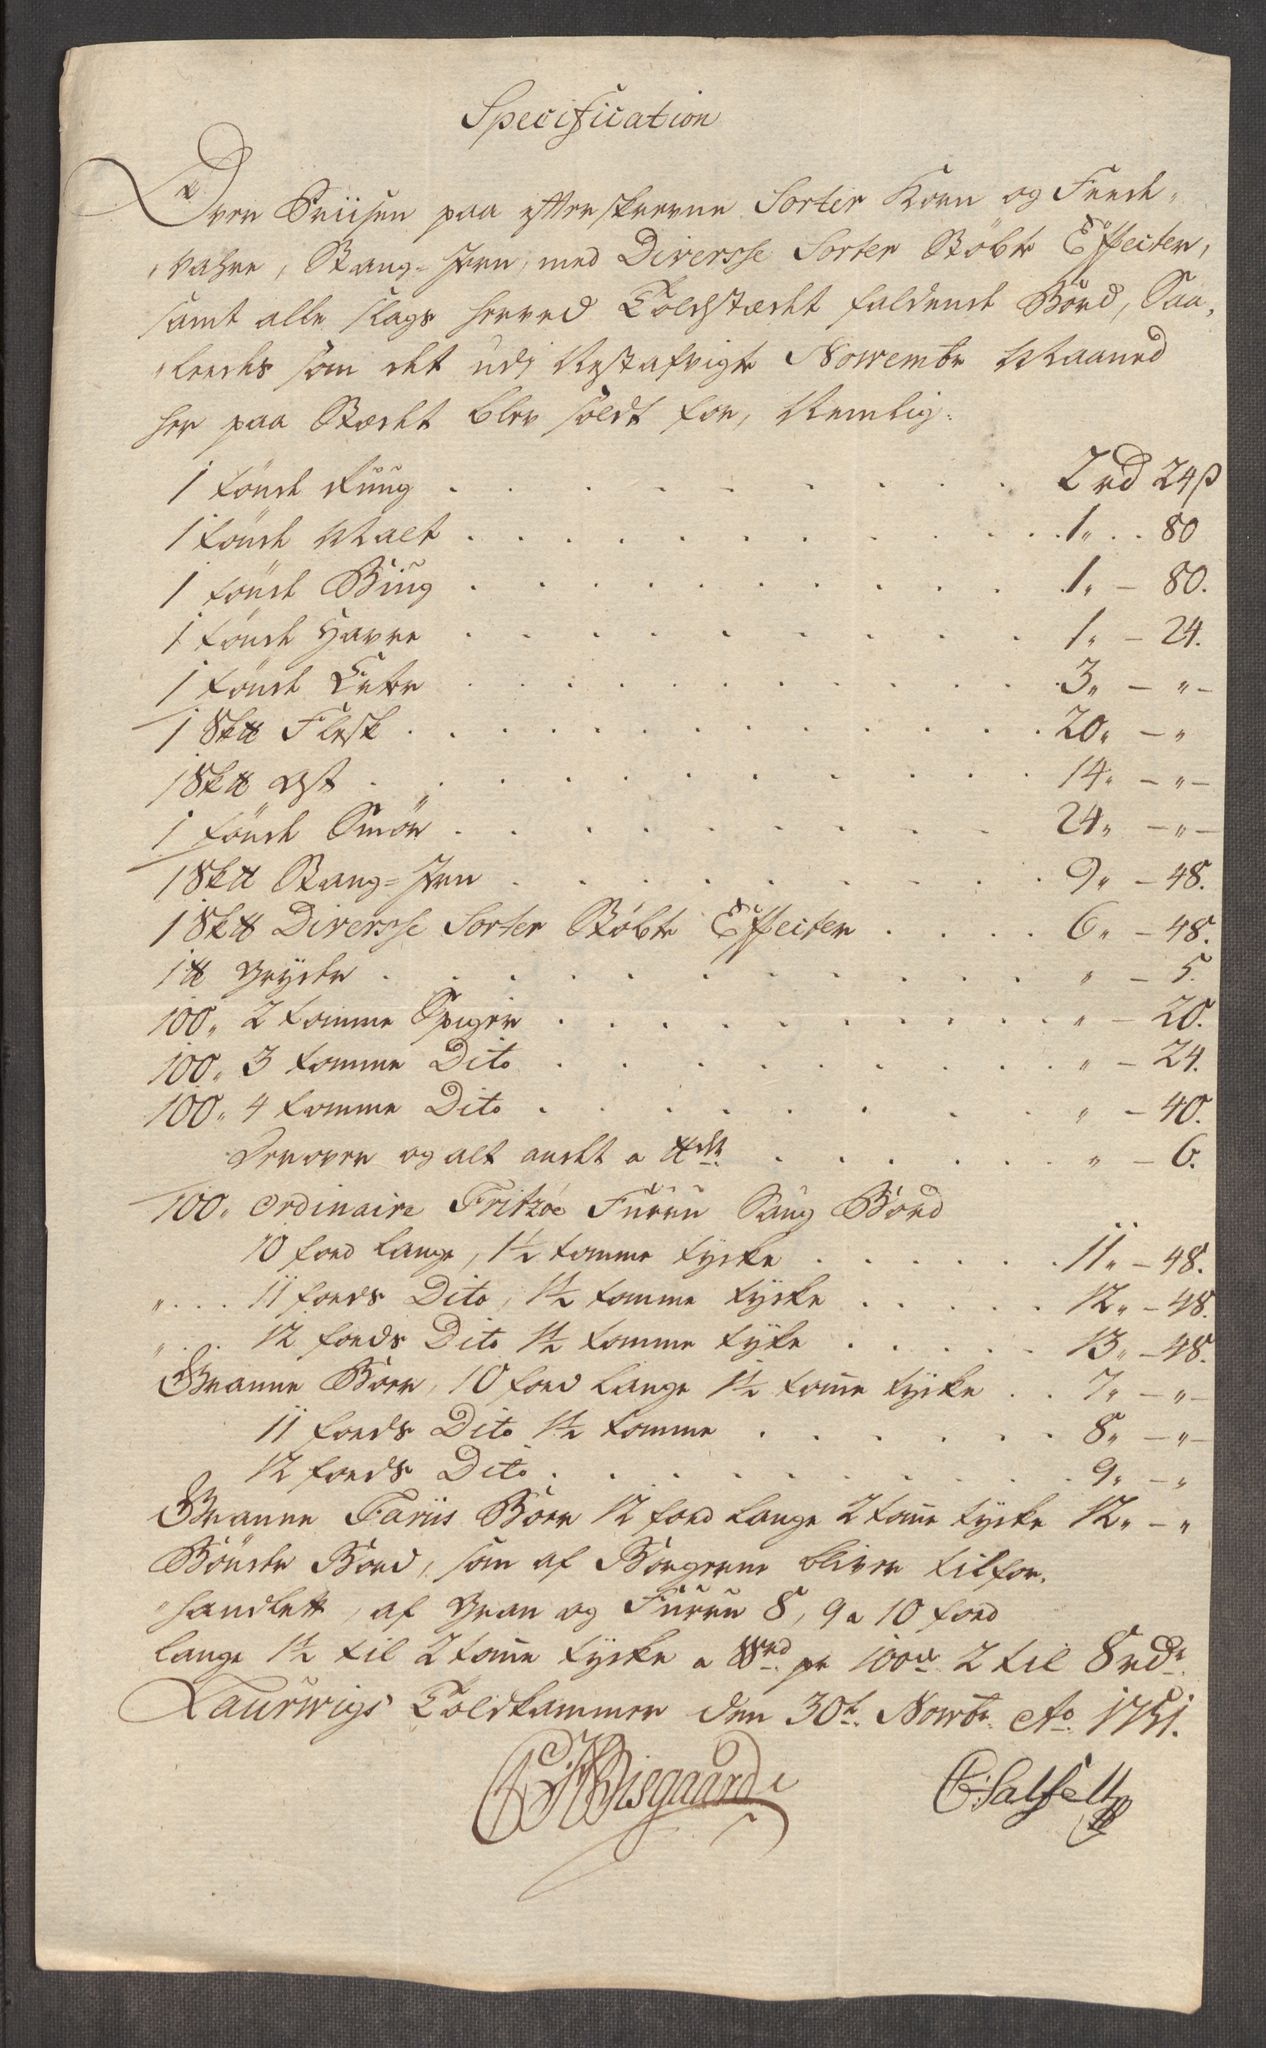 Specification
Over Priisen paa efterskrevne Sorter Korn og Feede-
vahre, Stang=Jern, med Diversse Sorter Støbte Effecter,
samt alle slags herved Toldstædet faldende Bord, Saa-
leedes som det udj Nestafvigte Novembr Maaned
her paa Stædet blev soldt for, Nemlig:
1 tønde Rŭŭg . . . 2 rd 24 ß
1 tønde Malt . . . 1„ . . 80
1 tønde Biŭg . . . 1„ – 80.
1 tønde Havre . . . 1„ – 24.
1 tønde Erter . . . 3„ – „ –
1 Sk℔ Flesk . . . 20„ – „
1 Sk℔ Ost . . . 14„ – „ –
1 tønde Smør . . . 24„ – „ –
1 Sk℔ Stang=Jern . . . 9„ – 48.
1 Sk℔ Diversse Sorter Støbte Effecter . . . 6„ – 48.
1 ℔ Gryder . . . „ – 5.
100„ 2 tomme Spiger . . . „ – 20.
100„ 3 tomme Dito . . . „ – 24.
100„ 4 tomme Dito . . . „ – 40.
Derover og alt andet a ℔det . . . „ – 6.
100„ ordinaire Fritzöe Fŭrrŭ Saug Bord
10 foed lange, 1½ tomme tycke . . . 11„ – 48.
„ . . . 11 foeds Dito, 1½ tomme tycke . . . 12„ – 48.
„ . . . 12 foeds Dito 1½ tomme tyke . . . 13„ – 48.
Granne Boer, 10 foed lange 1½ tome tycke . . 7„ – „ –
11 foeds Dito 1½ tomme . . . 8„ – „ –
12 foeds Dito . . . 9„ – „
Granne Fariis Boer 12 foed lange 2 tome tycke 12„ – „
Bønder Bord, som af Borgerne bliver tilfor-
handlett, af Gran og Fŭrrŭ 8, 9 a 10 foed
lange 1½ til 2 tome tycke a pr 100de 2 til 8 rdr
Laurwigs Toldkammer den 30te Novbr Ao 1751.
Wisgaard C: Salfelt